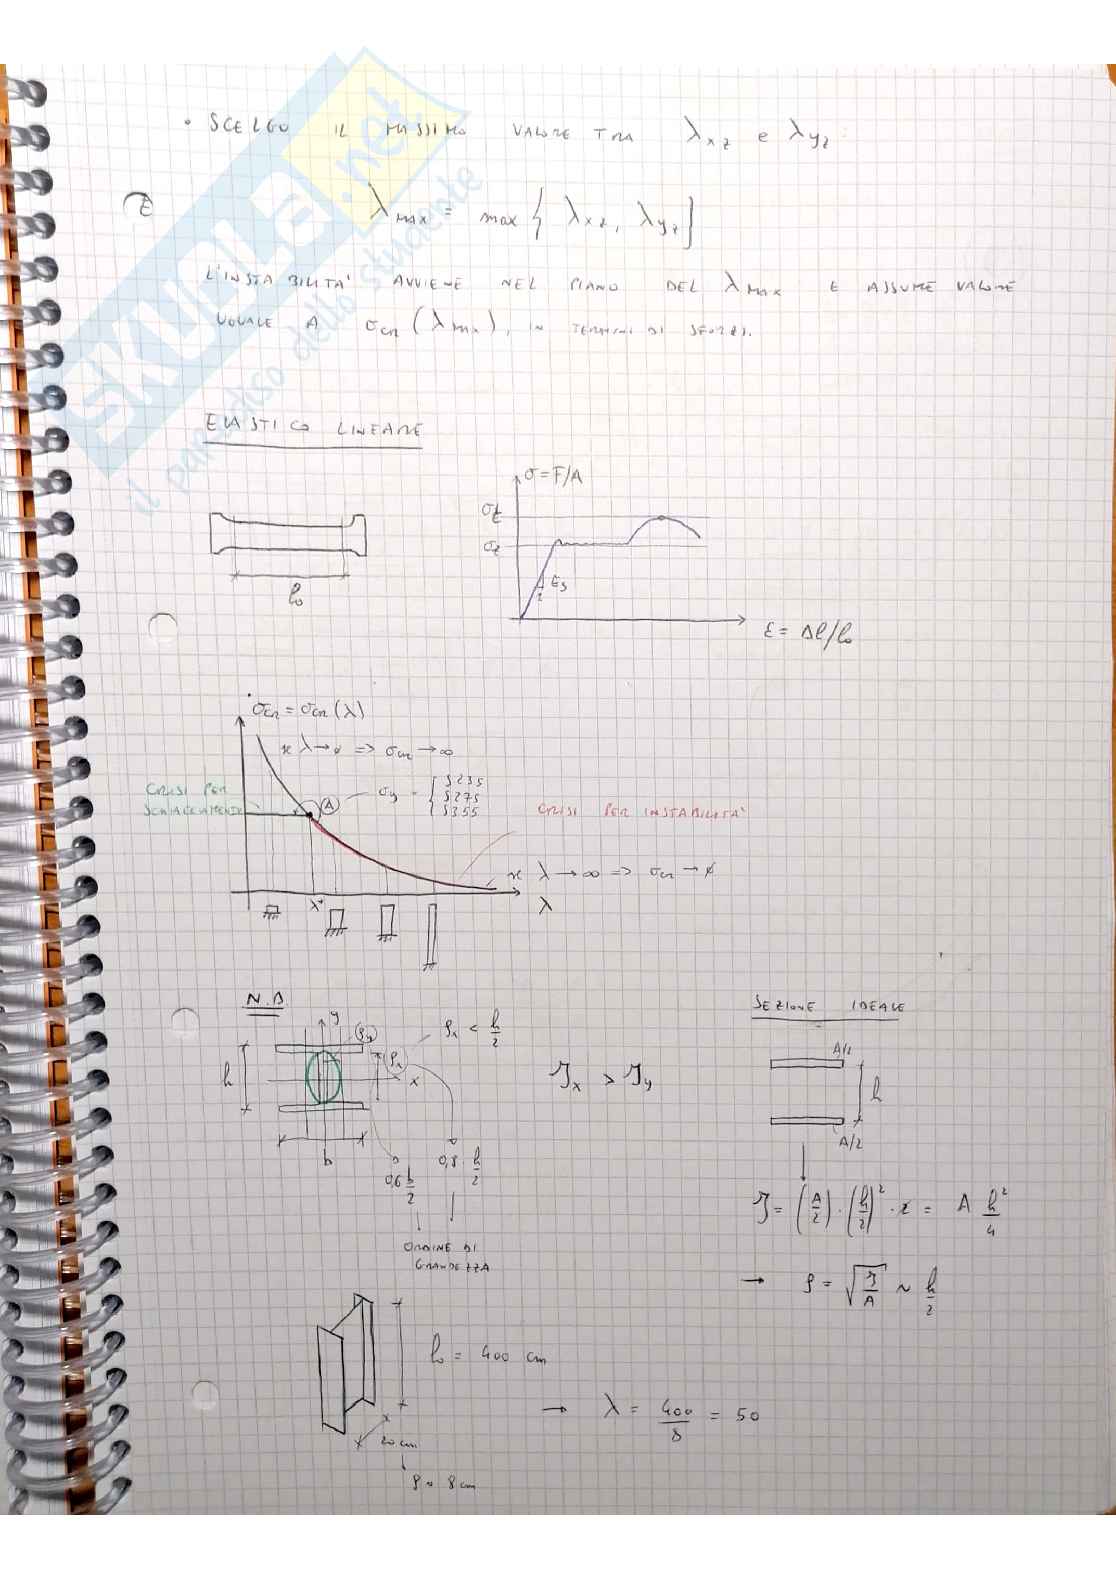 • SCELGO IL MASSIMO VALORE TRA λxz e λyz
λMAX = max { λxz, λyz }
L'INSTABILITA' AVVIENE NEL PIANO DEL λMAX E ASSUME VALORE
UGUALE A σcr (λMAX), IN TERMINI DI SFORZI.
ELASTICO LINEARE
l₀
σ = F/A
σt
Es
1
ε = Δl/l₀
σcr = σcr (λ)
se λ → 0 => σcr → ∞
CRISI PER
SCHIACCIAMENTO
A
σy = { S235
S275
S355
CRISI PER INSTABILITA'
se λ → ∞ => σcr → 0
λ*
λ
N.B.
y
ρy
ρx
ρx < h/2
x
h
b
0,6 b/2
0,8 h/2
ORDINE DI
GRANDEZZA
Jx > Jy
SEZIONE IDEALE
A/2
h
A/2
J = (A/2) · (h/2)² · 2 = A h²/4
→ ρ = √(J/A) ~ h/2
l₀ = 400 cm
20 cm
ρ ≈ 8 cm
→ λ = 400/8 = 50
SKUOLA.net
il paradiso dello studente